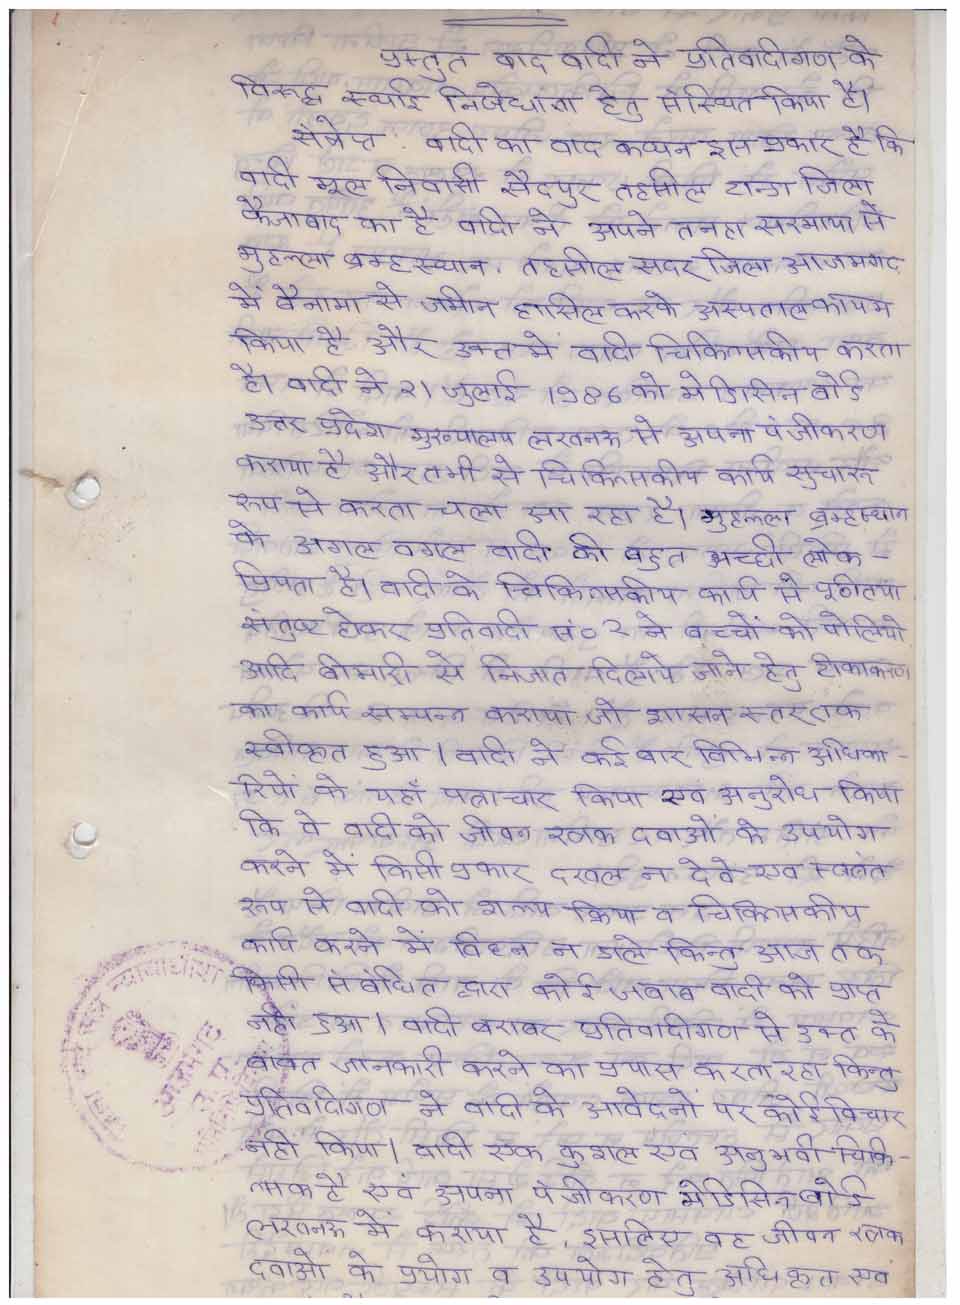 प्रस्तुत वाद वादी ने प्रतिवादीगण के
विरूद्ध स्थाई निषेधाज्ञा हेतु संस्थित किया है।
संक्षेप वादी का वाद कथन इस प्रकार है कि
वादी मूल निवासी सैदपुर तहसील टान्डा जिला
फैजाबाद का है वादी ने अपने तनहा सरमाया से
मुहल्ला ब्रम्हस्थान, तहसील सदर जिला आजमगढ़
में बैनामा से जमीन हासिल करके अस्पताल कायम
किया है और उक्त में वादी चिकित्सकीय करता
है। वादी ने 21 जुलाई 1986 को मेडिसिन बोर्ड
उत्तर प्रदेश मुख्यालय लखनऊ में अपना पंजीकरण
कराया है और तभी से चिकित्सकीय कार्य सुचारू
रूप से करता चला आ रहा है। मुहल्ला ब्रम्हस्थान
के अगल वगल वादी की बहुत अच्छी लोक
प्रियता है। वादी के चिकित्सकीय कार्य से पूर्णतया
संतुष्ट होकर प्रतिवादी सं० 2 ने बच्चों को पोलियो
आदि बीमारी से निजात दिलाये जाने हेतु टीकाकरण
का कार्य सम्पन्न कराया जो शासन स्तर तक
स्वीकृत हुआ। वादी ने कई बार विभिन्न अधिका-
रियों के यहाँ पत्राचार किया एवं अनुरोध किया
कि वे वादी को जीवन रक्षक दवाओं के उपयोग
करने में किसी प्रकार दखल न देवे एवं स्वतंत्र
रूप से वादी को शल्य क्रिया व चिकित्सकीय
कार्य करने में विघ्न न डाले किन्तु आज तक
किसी संबंधित द्वारा कोई जवाब वादी को प्राप्त
नहीं हुआ। वादी बराबर प्रतिवादीगण से उक्त के
बावत जानकारी करने का प्रयास करता रहा किन्तु
प्रतिवादीगण ने वादी के आवेदनों पर कोई विचार
नहीं किया। वादी एक कुशल एवं अनुभवी चिकि-
त्सक है एवं अपना पंजीकरण मेडिसिन बोर्ड
लखनऊ में कराया है, इसलिए वह जीवन रक्षक
दवाओं के प्रयोग व उपयोग हेतु अधिकृत एवं
न्यायाधीश
आजमगढ़